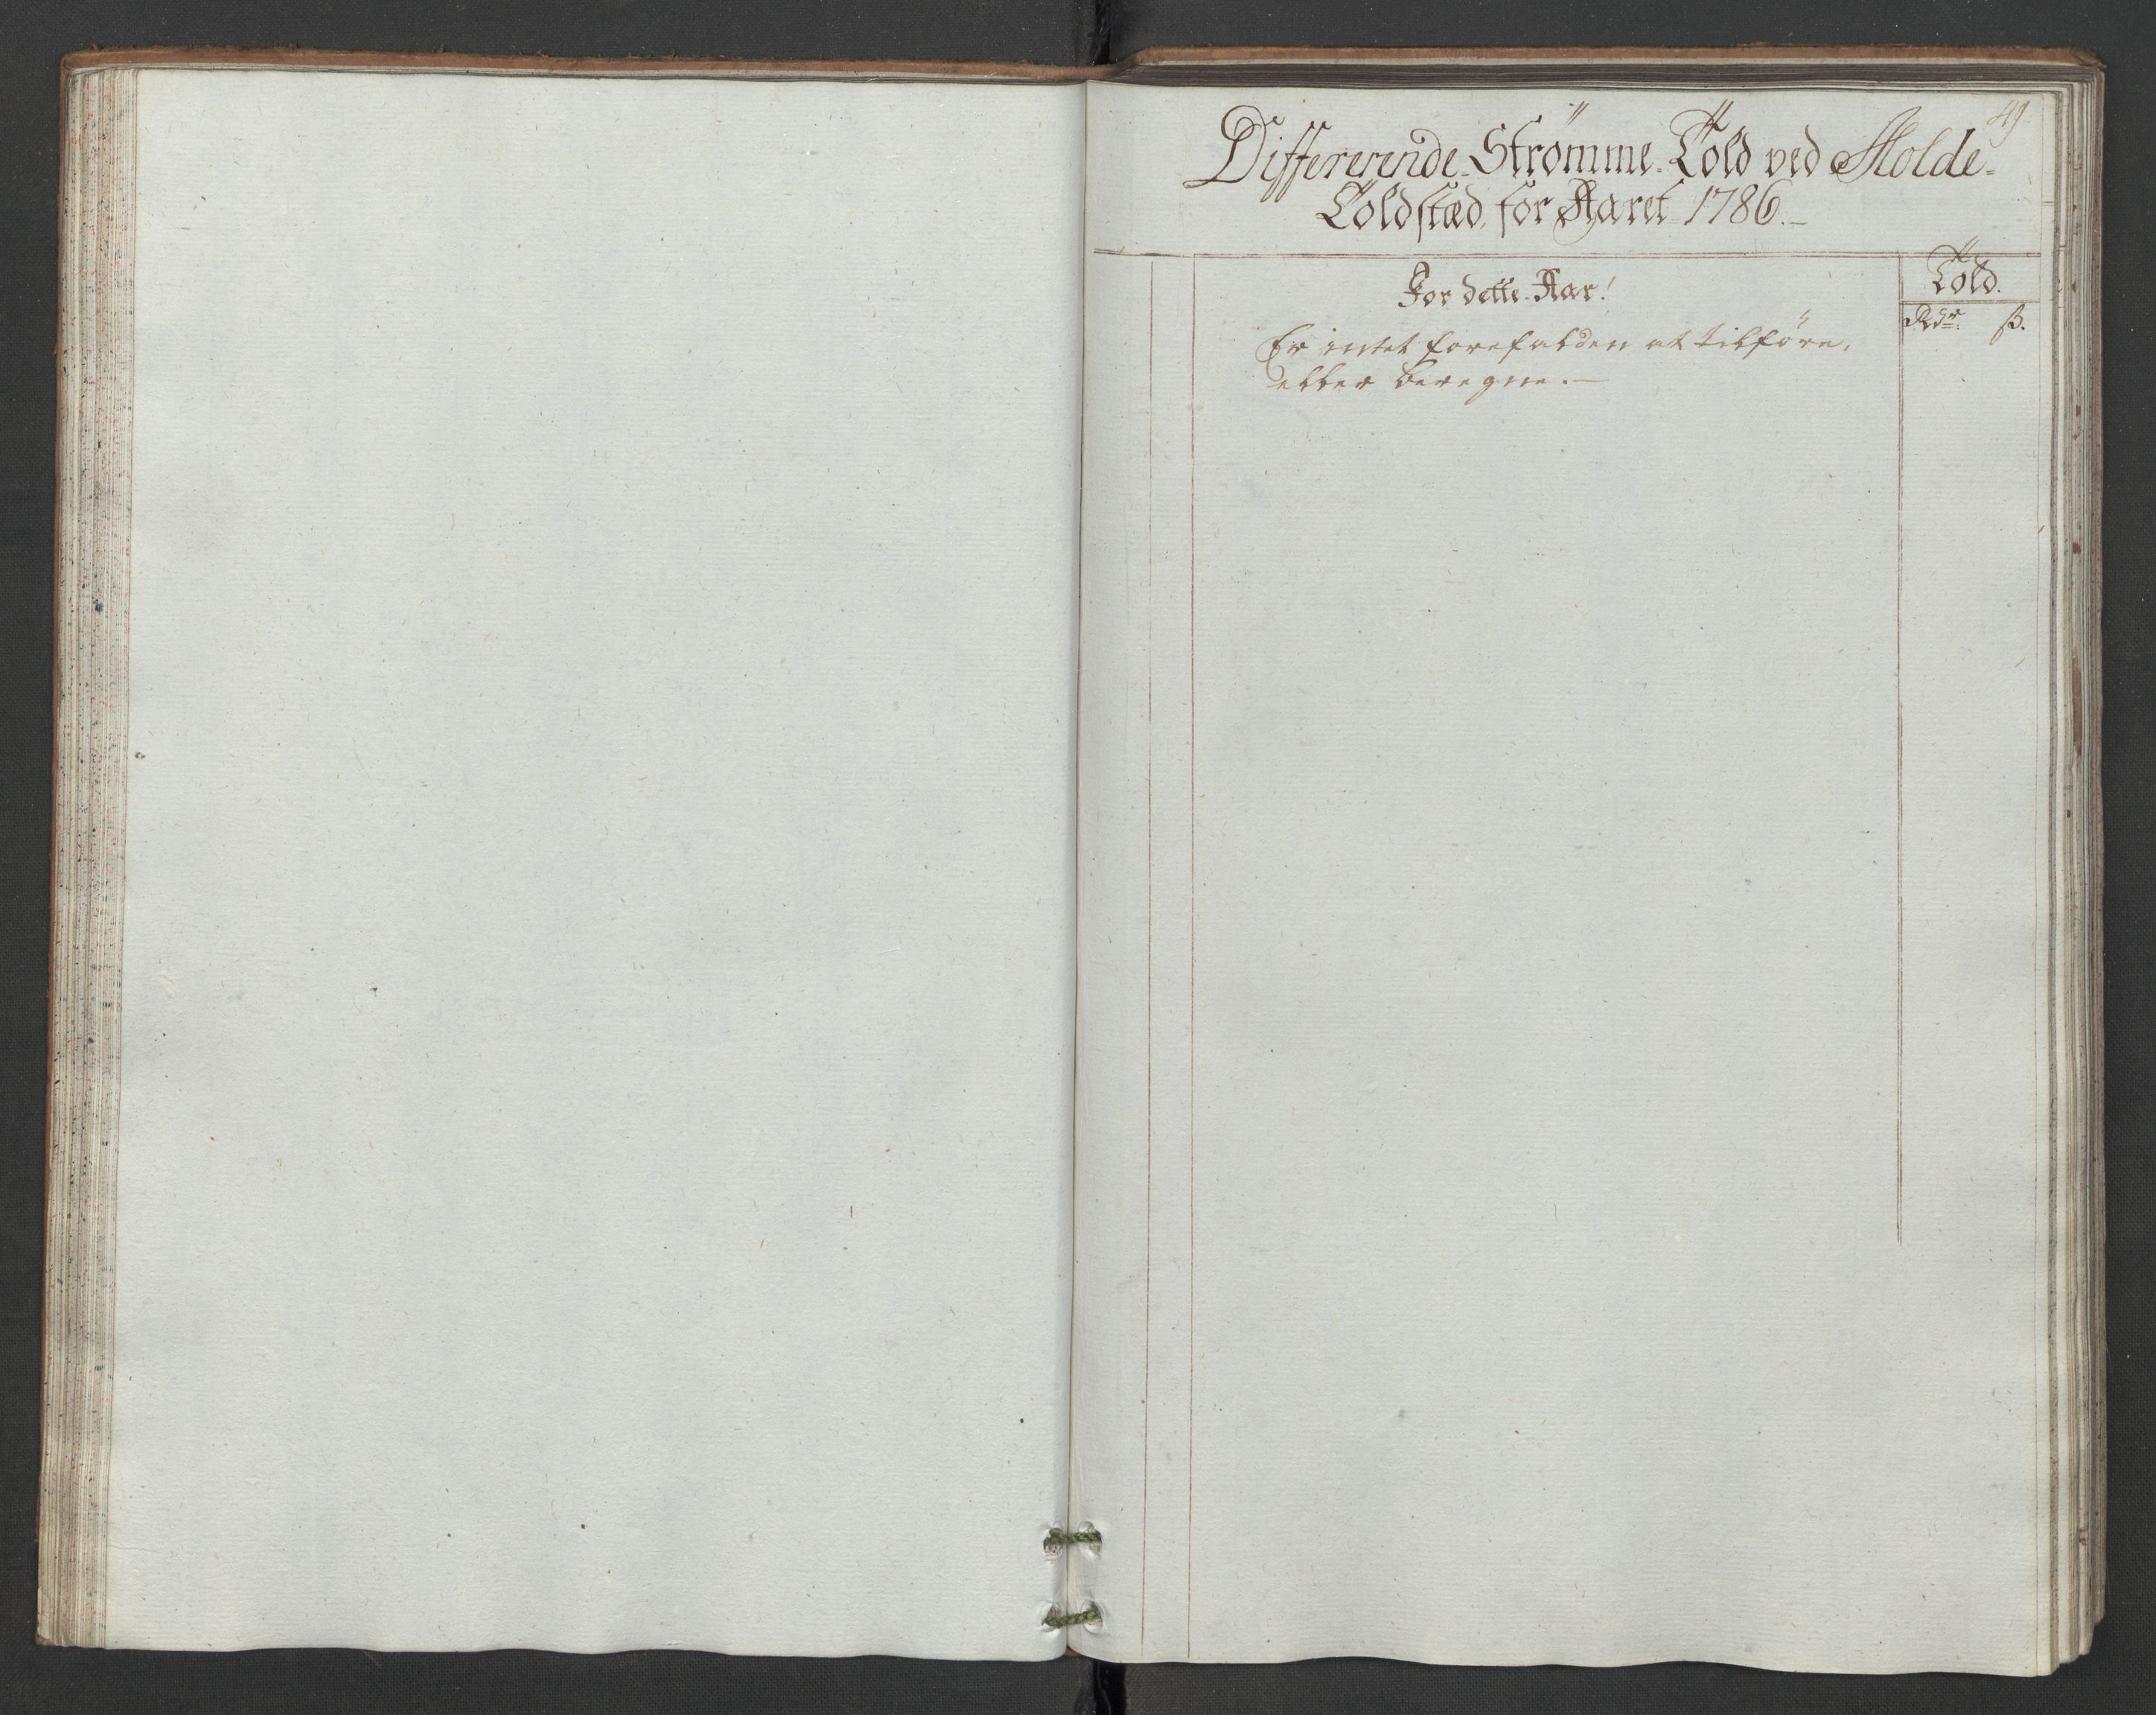 49
Differerende Strømme Told ved Molde
Toldstæd for Aaret 1786.
For dette Aar!
Told.
Rdr. ß.
Er intet forefalden at tilføre,
eller beregne.